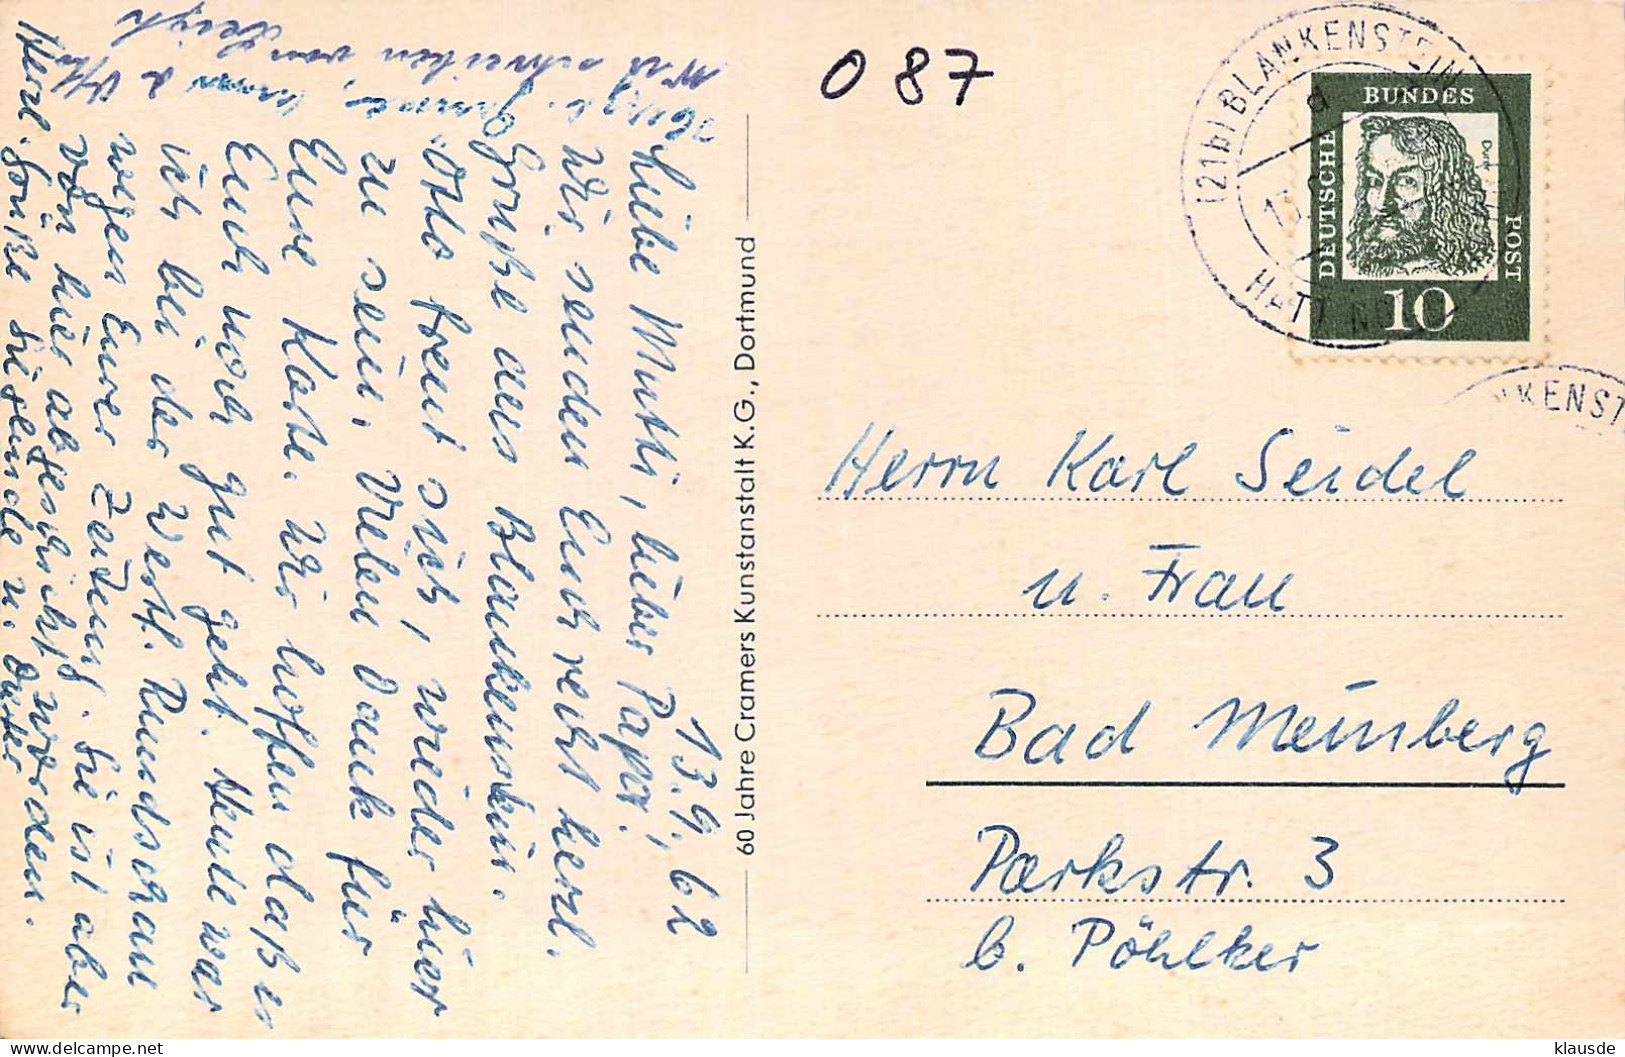 087
(21b) BLANKENSTEIN
HATTINGEN
d
13.
DEUTSCHE
BUNDES
POST
10
KENST
13.9.62
Liebe Mutti, lieber Papa!
Wir senden Euch recht herzl.
Grüße aus Blankenstein.
Otto freut sich, wieder hier
zu sein. Vielen Dank für
Eure Karte. Wir hoffen daß es
Euch noch gut geht. Heute war
ich bei der Westf. Rundschau
wegen Eurer Zeitung. Sie ist aber
von hier abgeschickt worden.
Herzl. Grüße Eure
schreiben von
60 Jahre Cramers Kunstanstalt K.G., Dortmund
Herrn Karl Seidel
u. Frau
Bad Meinberg
Parkstr. 3
b. Pöhlker
delcampe.net
klausde